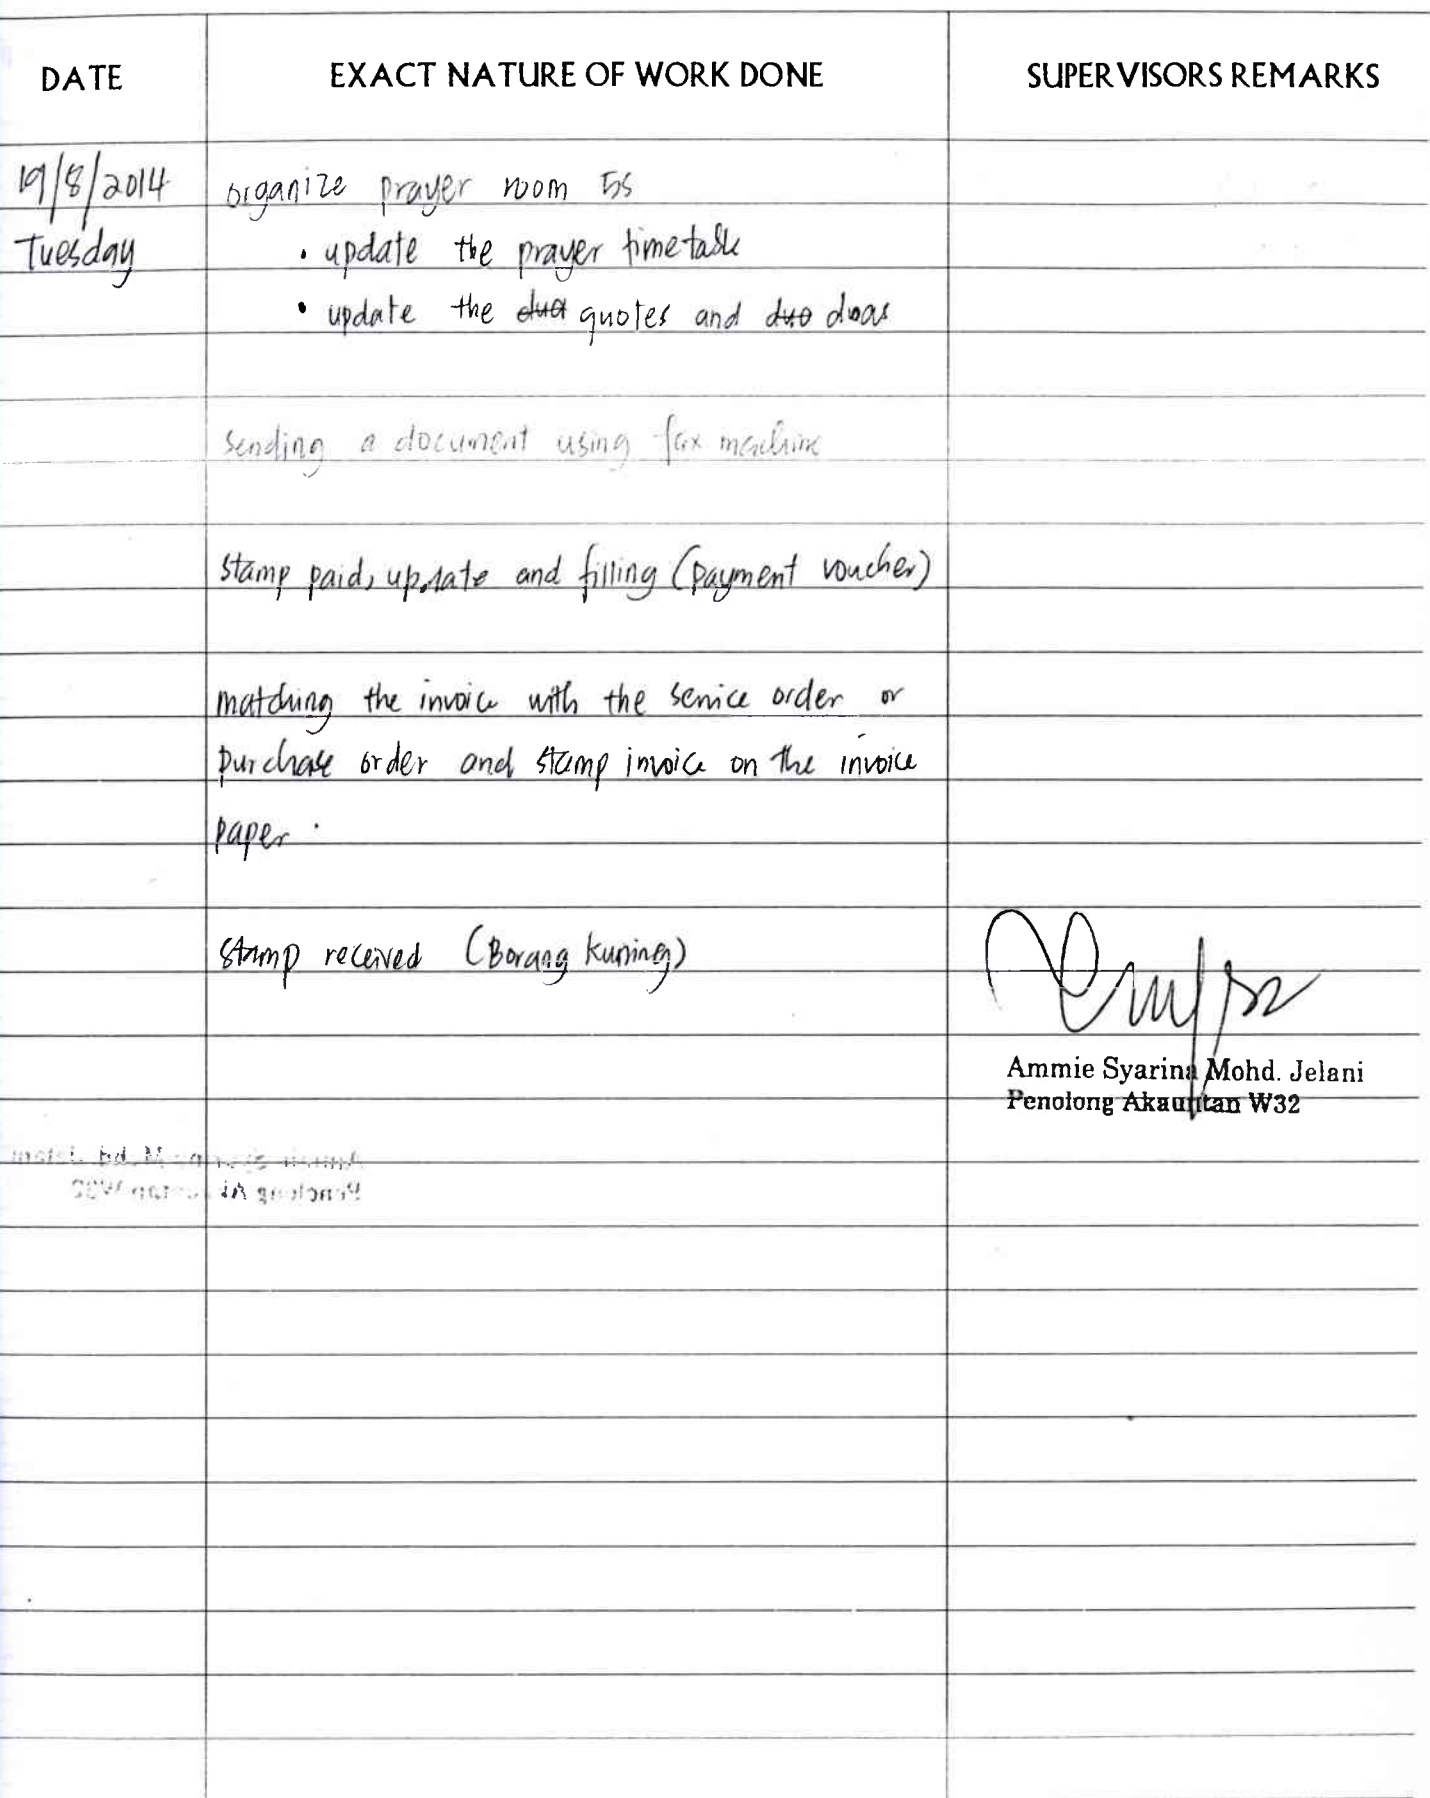 DATE EXACT NATURE OF WORK DONE SUPERVISORS REMARKS
19/8/2014 organize prayer room 5S
Tuesday • update the prayer timetable
• update the dua quotes and duo doas
sending a document using fax machine
stamp paid, update and filling (payment voucher)
matching the invoice with the service order or
purchase order and stamp invoice on the invoice
paper.
stamp received (Borang kuning)
Ammie Syarina Mohd. Jelani
Penolong Akauntan W32